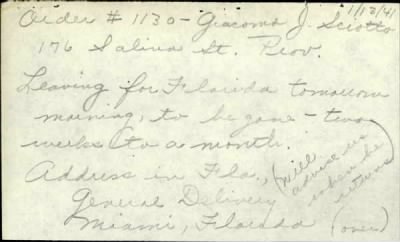 1/13/41
Order # 1130 - Giacomo J. Sciotto
176 Salina St. Prov.
Leaving for Florida tomorrow
morning, to be gone - two
weeks to a month.
Address in Fla.,
General Delivery
Miami, Florida
(will
advise us
when he
returns)
(over)